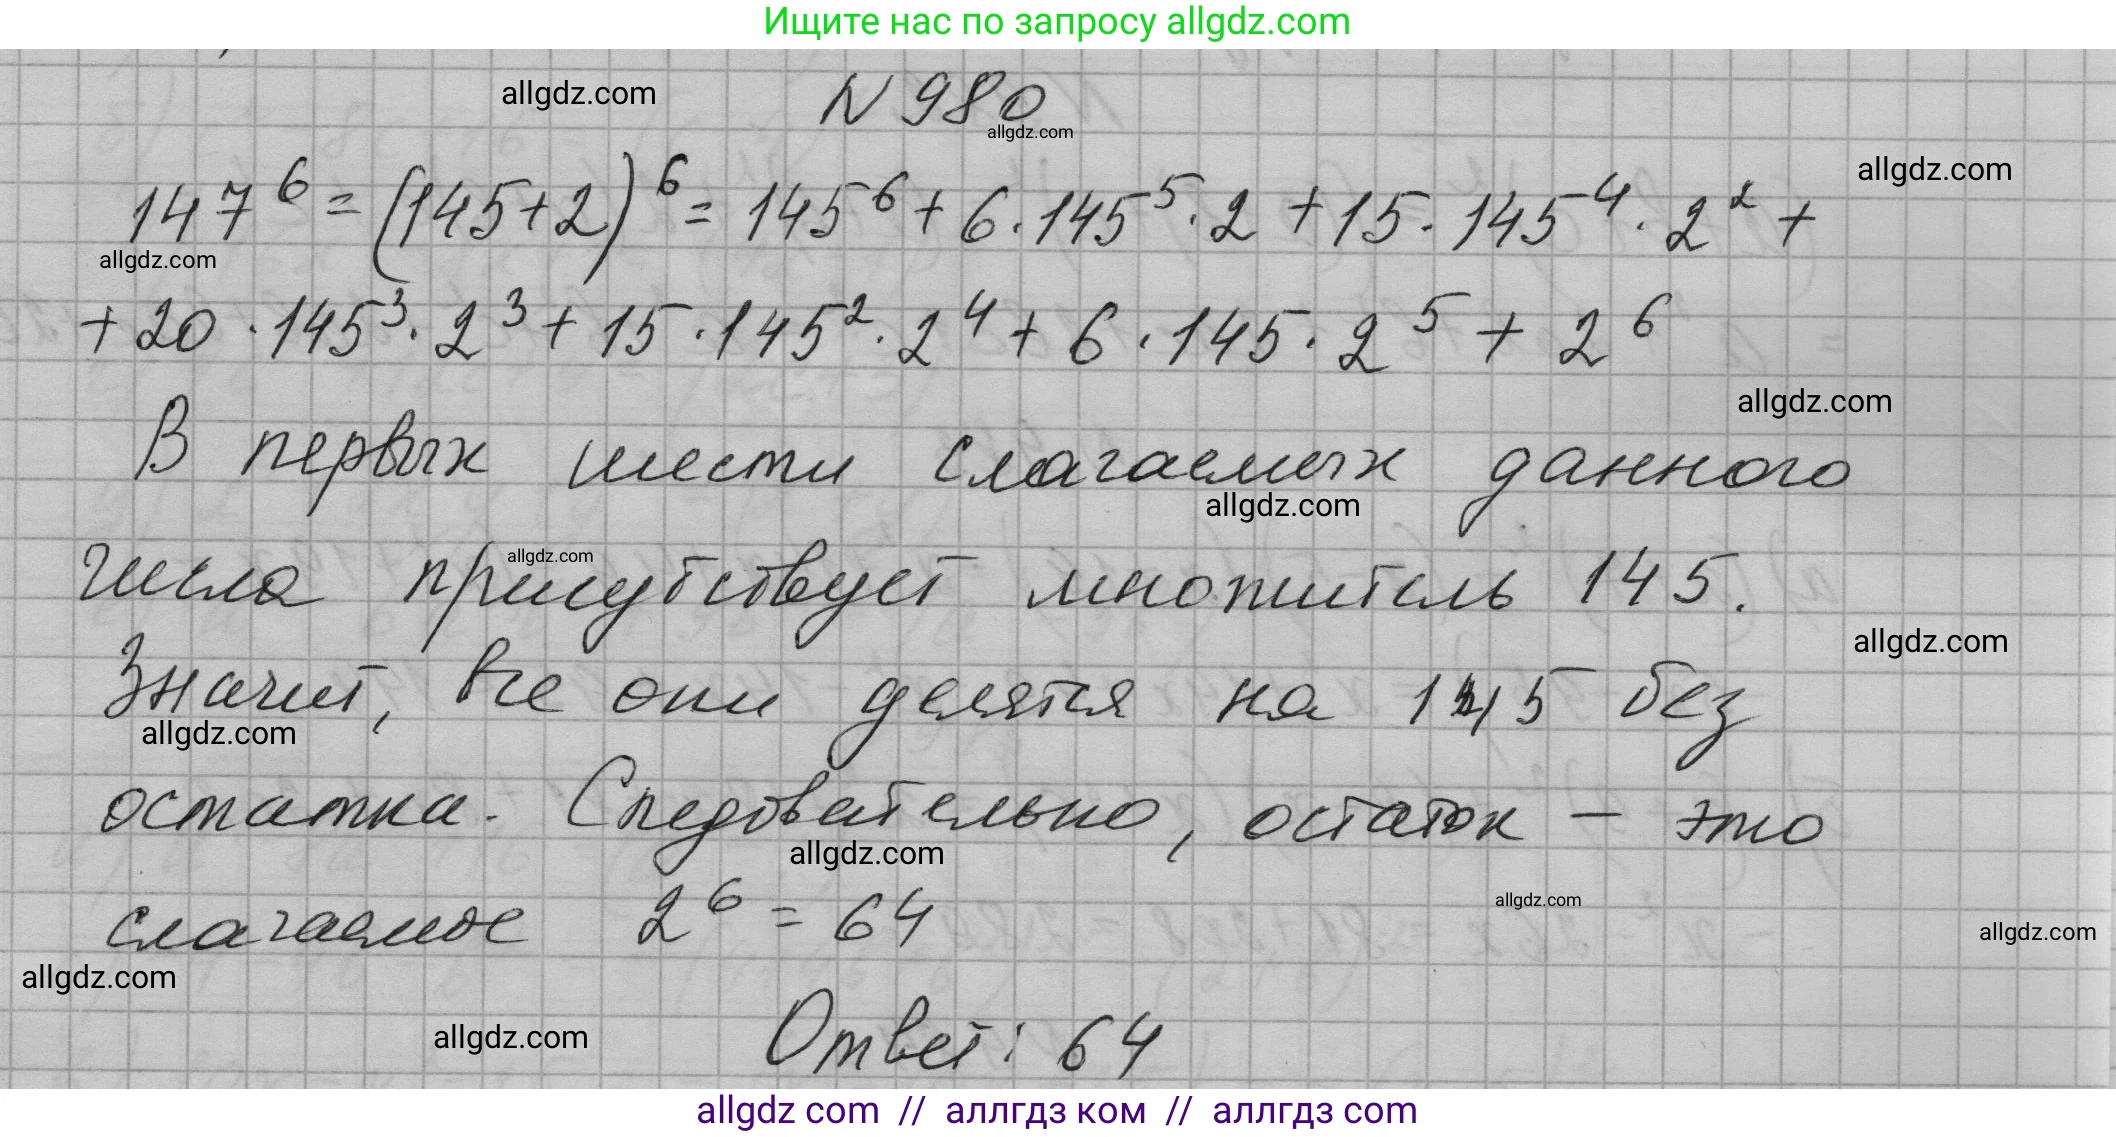 Ищите нас по запросу allgdz.com
allgdz.com
N 980
allgdz.com
allgdz.com
147^6 = (145+2)^6 = 145^6 + 6·145^5·2 + 15·145^4·2^2 +
allgdz.com
+ 20·145^3·2^3 + 15·145^2·2^4 + 6·145·2^5 + 2^6
allgdz.com
В первых шести слагаемых данного
allgdz.com
числа присутствует множитель 145.
allgdz.com
allgdz.com
Значит, все они делятся на 145 без
allgdz.com
остатка. Следовательно, остаток – это
allgdz.com
слагаемое 2^6 = 64
allgdz.com
allgdz.com
allgdz.com
allgdz.com
Ответ: 64
allgdz com // аллгдз ком // аллгдз com